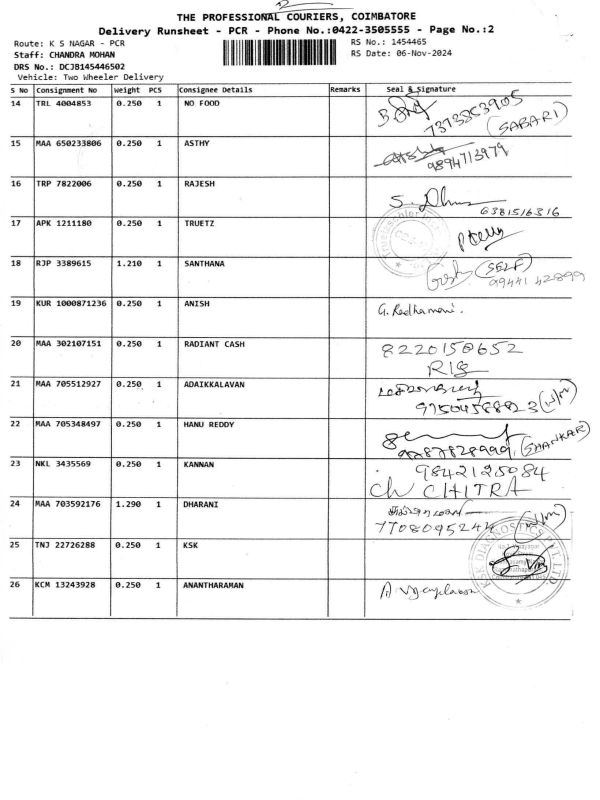 THE PROFESSIONAL COURIERS, COIMBATORE
Delivery Runsheet - PCR - Phone No.:0422-3505555 - Page No.:2
Route: K S NAGAR - PCR
RS No.: 1454465
Staff: CHANDRA MOHAN
RS Date: 06-Nov-2024
DRS No.: DCJB145446502
Vehicle: Two Wheeler Delivery
S No Consignment No Weight PCS Consignee Details Remarks Seal & Signature
14 TRL 4004853 0.250 1 NO FOOD
7373353905
(SABARI)
15 MAA 650233806 0.250 1 ASTHY
9894713979
16 TRP 7822006 0.250 1 RAJESH
6381516316
17 APK 1211180 0.250 1 TRUETZ
18 RJP 3389615 1.210 1 SANTHANA
(SELF)
99441 42899
19 KUR 1000871236 0.250 1 ANISH
G. Radhamani.
20 MAA 302107151 0.250 1 RADIANT CASH
8220150652
21 MAA 705512927 0.250 1 ADAIKKALAVAN
22 MAA 705348497 0.250 1 HANU REDDY
(SHANKAR)
23 NKL 3435569 0.250 1 KANNAN
9842125084
CHITRA
24 MAA 703592176 1.290 1 DHARANI
7708095244
25 TNJ 22726288 0.250 1 KSK
KSK DIAGNOSTICS PVT. LTD.
26 KCM 13243928 0.250 1 ANANTHARAMAN